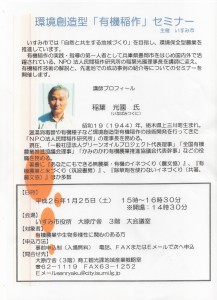 環境創造型「有機稲作」セミナー
主催 いすみ市
いすみ市では「自然と共生する地域づくり」を目指し、環境保全型農業を
推進しています。
有機稲作の実践・普及の第一人者として兵庫県豊岡市をはじめ国内外で活躍
されている、NPO法人民間稲作研究所の稲葉光國理事長を講師に迎え、
有機稲作技術の解説と、先進地での成功事例の紹介等についてのセミナーを開催
します。
講師プロフィール
稲葉 光國 氏
(いなばみつくに)
昭和19(1944)年、栃木県上三川町生まれ。
「NPO法人民間稲作研究所」理事長。
【日時】
平成26年1月25日(土) 15時~16時30分
※開場:14時30分
【会場】
いすみ市役所 大原庁舎 3階 大会議室
【対象】
有機農業や生物多様性に関心のある方
【申込方法】
事前申込制(入場無料) 電話、FAXまたはEメールで次へ申込
【問合せ】
大原庁舎(3階)商工観光課地域産業戦略班
☎62-1119 FAX63-1252